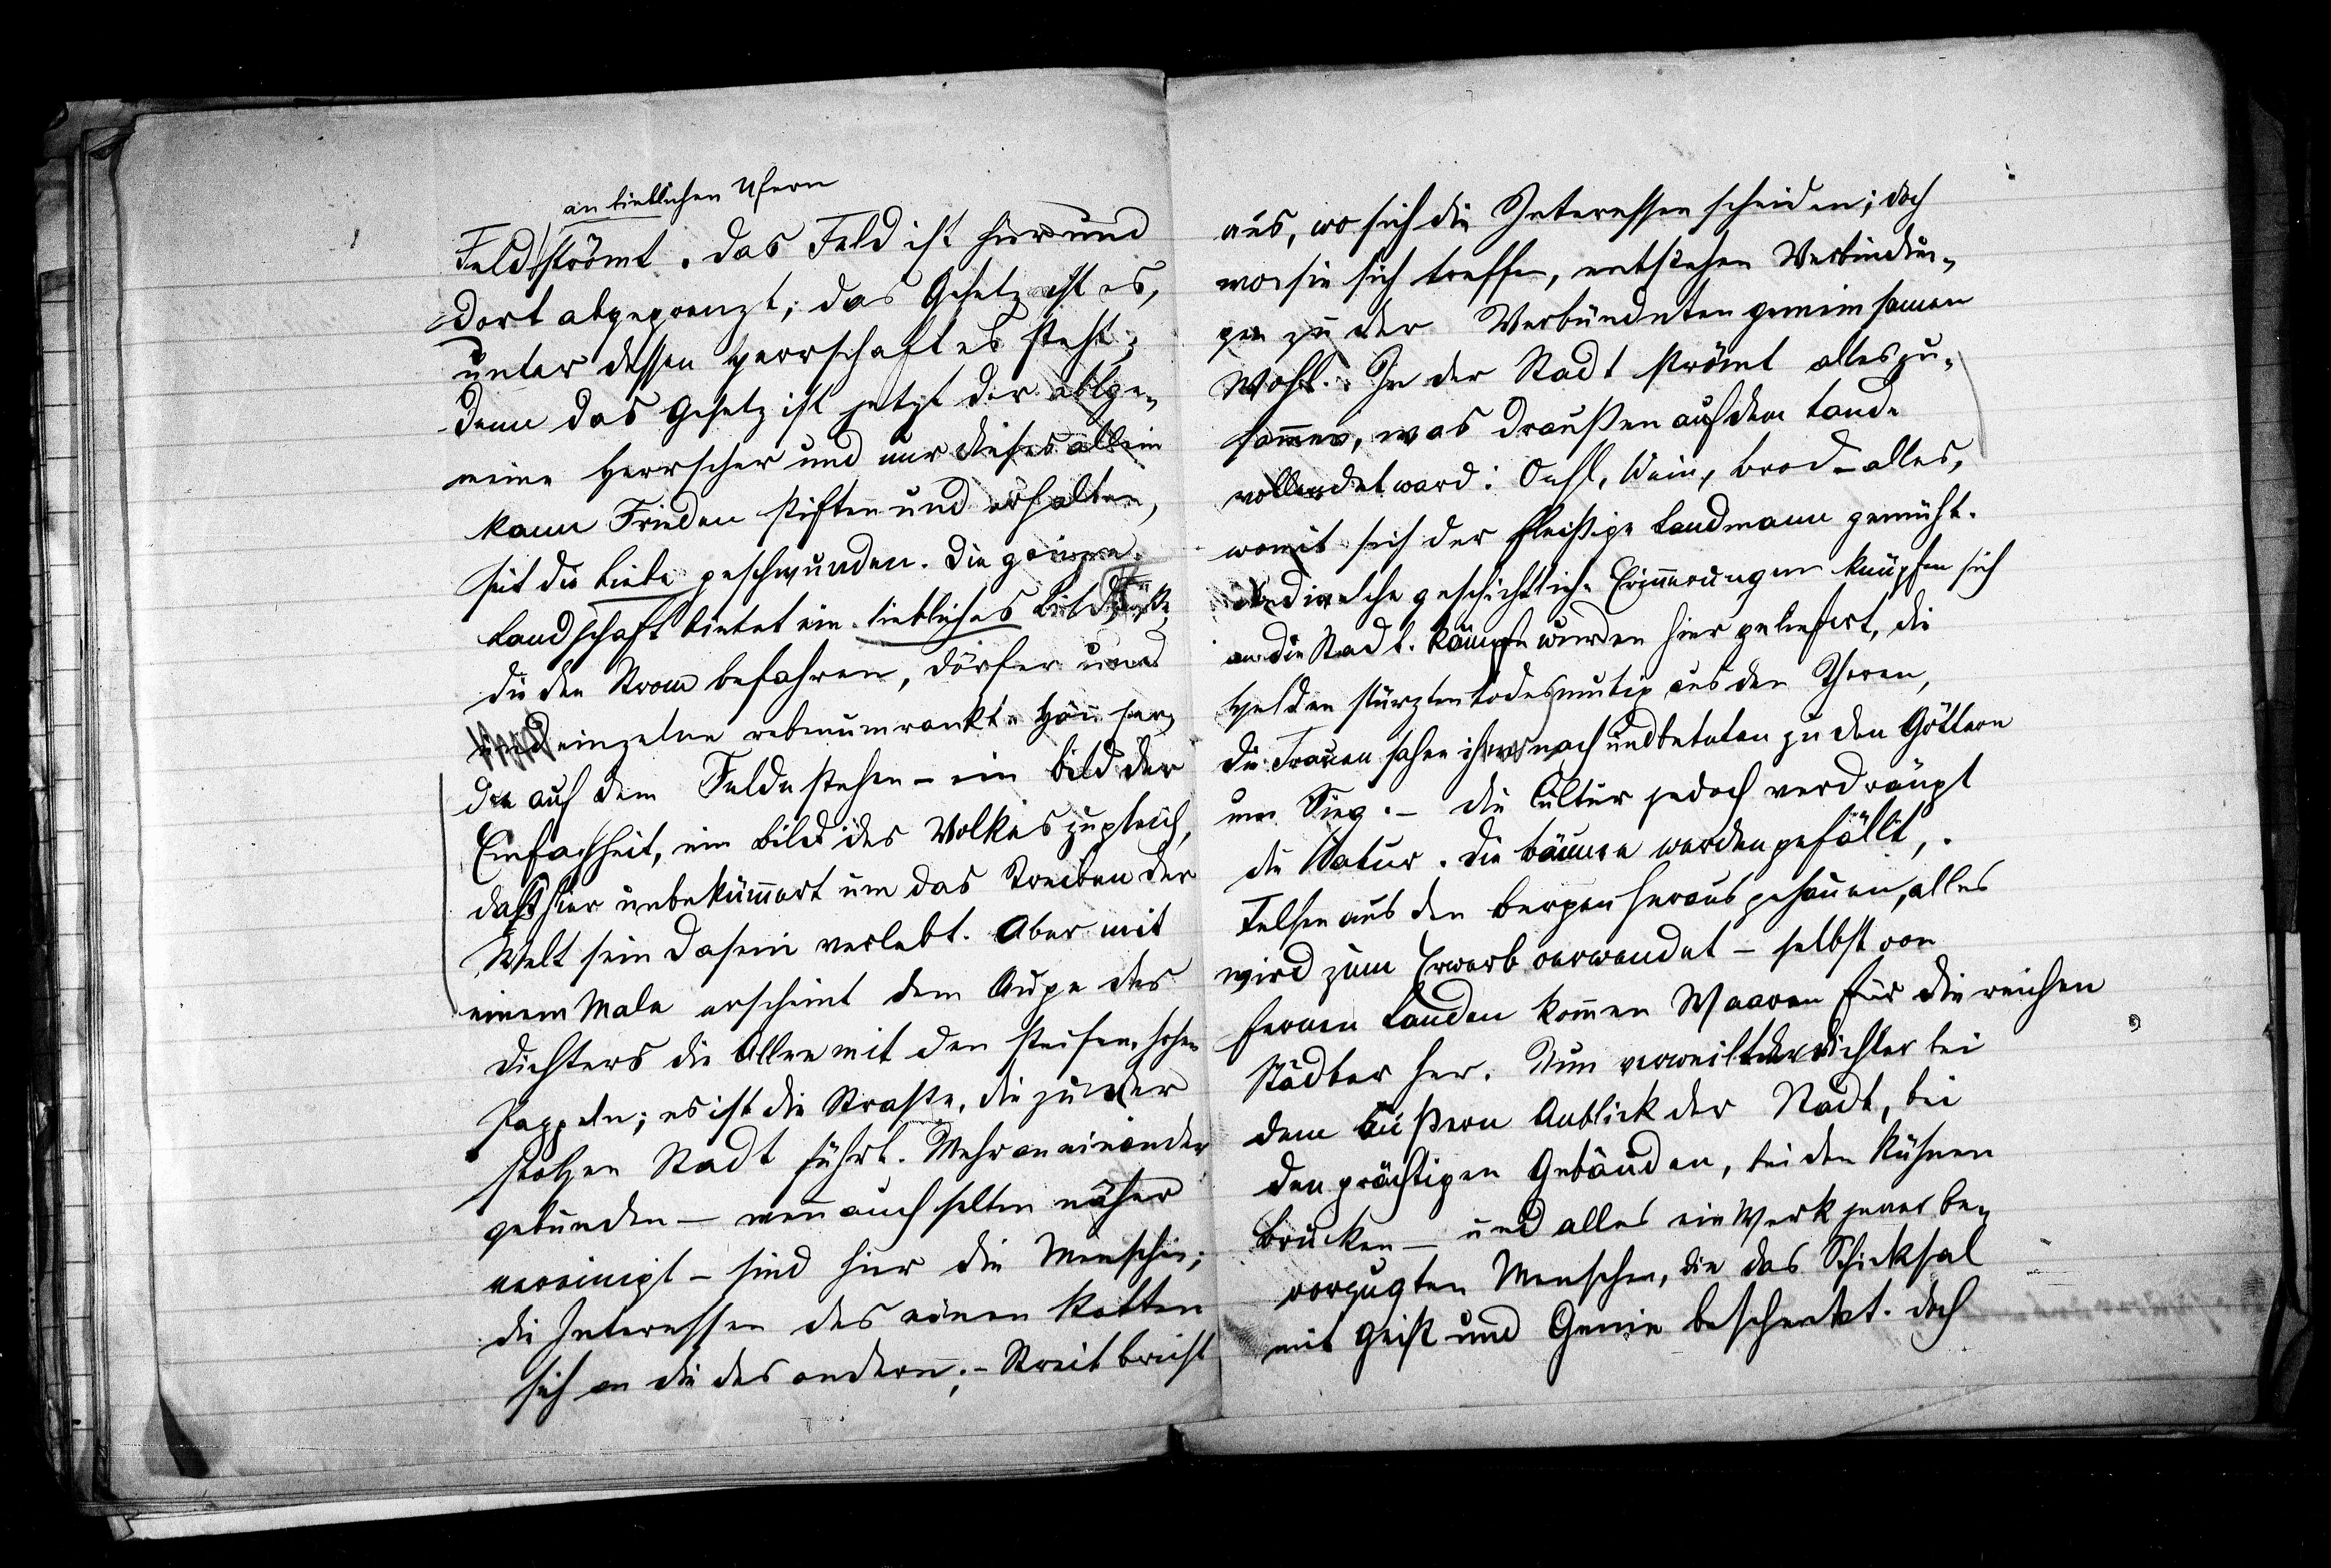 an lieblichen Ufern
Feld strömt. Das Feld ist hier und
dort abgegrenzt; das Gesetz ist es,
unter dessen Herrschaft es steht;
denn das Gesetz ist jetzt der allge-
meine Herrscher und nur dieses allein
kann Frieden stiften und erhalten,
seit die Liebe geschwunden. Die ganze
Landschaft bietet ein liebliches Bild
die den Strom befahren, Dörfer und
und einzelne rebenumrankte Häuser,
die auf dem Felde stehen – ein Bild der
Einfachheit, ein Bild des Volkes zugleich,
das hier unbekümmert um das Treiben der
Welt sein Dasein verlebt. Aber mit
einem Male erscheint dem Auge des
Dichters die Allee mit den steifen, hohen
Pappeln; es ist die Straße, die zu der
stolzen Stadt führt. Mehr aneinander
gebunden – wenn auch selten näher
vereinigt – sind hier die Menschen;
die Interessen des einen ketten
sich an die des andern; – Streit bricht
aus, wo sich die Interessen scheiden; doch
wo sie sich treffen, entstehen Verbindun-
gen zu der Verbündeten gemeinsamen
Wohl. In der Stadt strömt alles zu-
sammen, was draußen auf dem Lande
vollendet ward: Oehl, Wein, Brod – alles,
womit sich der fleißige Landmann gemüht.
Und welche geschichtliche Erinnerungen knüpfen sich
an die Stadt. Kämpfe wurden hier geliefert, die
Helden stürzten todesmutig aus den Thoren,
die Frauen sahen ihnen nach und beteten zu den Göttern
um Sieg. – Die Cultur jedoch verdrängt
die Natur. Die Bäume werden gefällt,
Felsen aus den Bergen herausgehauen, alles
wird zum Erwerb verwendet – selbst von
fernen Landen kommen Waaren für die reichen
Städter her. Nun verweilt der Dichter bei
dem äußern Anblick der Stadt, bei
den prächtigen Gebäuden, bei den kühnen
Brücken – und alles ein Werk jener be-
vorzugten Menschen, die das Schicksal
mit Geist und Genie beschenkt. Doch